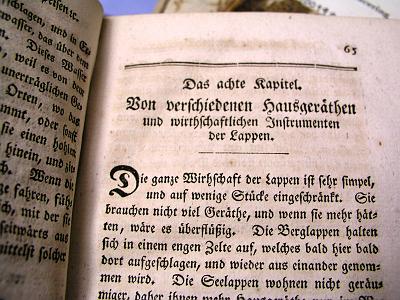 peisen re
schlagen, und in
wasser, das über dem
Dieses Wasser
weil es von dem
unerträglichen
Orten, wo das
mmt, oder sonst
sie einen hohlen
hinein, und
Wenn die
ze fahren,
ich, mit der
seitwärts aus
mittelst solcher
65
Das achte Kapitel.
Von verschiedenen Hausgeräthen
und wirthschaftlichen Instrumenten
der Lappen.
Die ganze Wirhschaft der Lappen ist sehr simpel,
und auf wenige Stücke eingeschränkt. Sie
brauchen nicht viel Geräthe, und wenn sie mehr hät-
ten, wäre es überflüßig. Die Berglappen halten
sich in einem engen Zelte auf, welches bald hier bald
dort aufgeschlagen, und wieder aus einander genom-
men wird. Die Seelappen wohnen nicht geräu-
miger, daher ihnen mehr